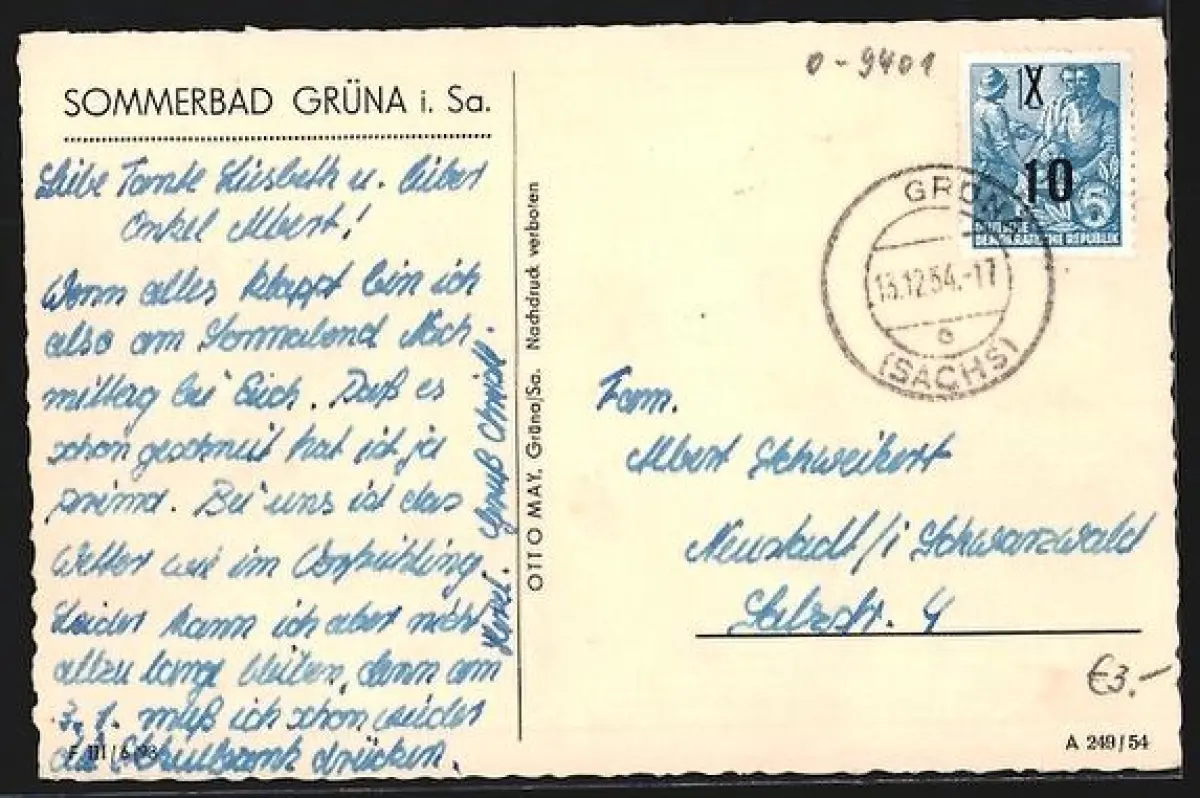 SOMMERBAD GRÜNA i. Sa.
Liebe Tante Liesbeth u. lieber
Onkel Albert!
Wenn alles klappt bin ich
also am Sonnabend Nach-
mittag bei Euch. Daß es
schon geschneit hat ist ja
prima. Bei uns ist das
Wetter wie im Vorfrühling
Leider kann ich aber nicht
allzu lange bleiben, denn am
3. 1. muß ich schon wieder
die Schulbank drücken.
Herzl. Gruß
F 111/6 93
OTTO MAY. Grüna/Sa. Nachdruck verboten
0-9401
IX
10
5
DEUTSCHE
DEMOKRATISCHE REPUBLIK
GRÜNA
13.12.54.-17
(SACHS)
Fam.
Albert Schweikert
Neustadt/i Schwarzwald
Salzstr. 4
€3.-
A 249/54